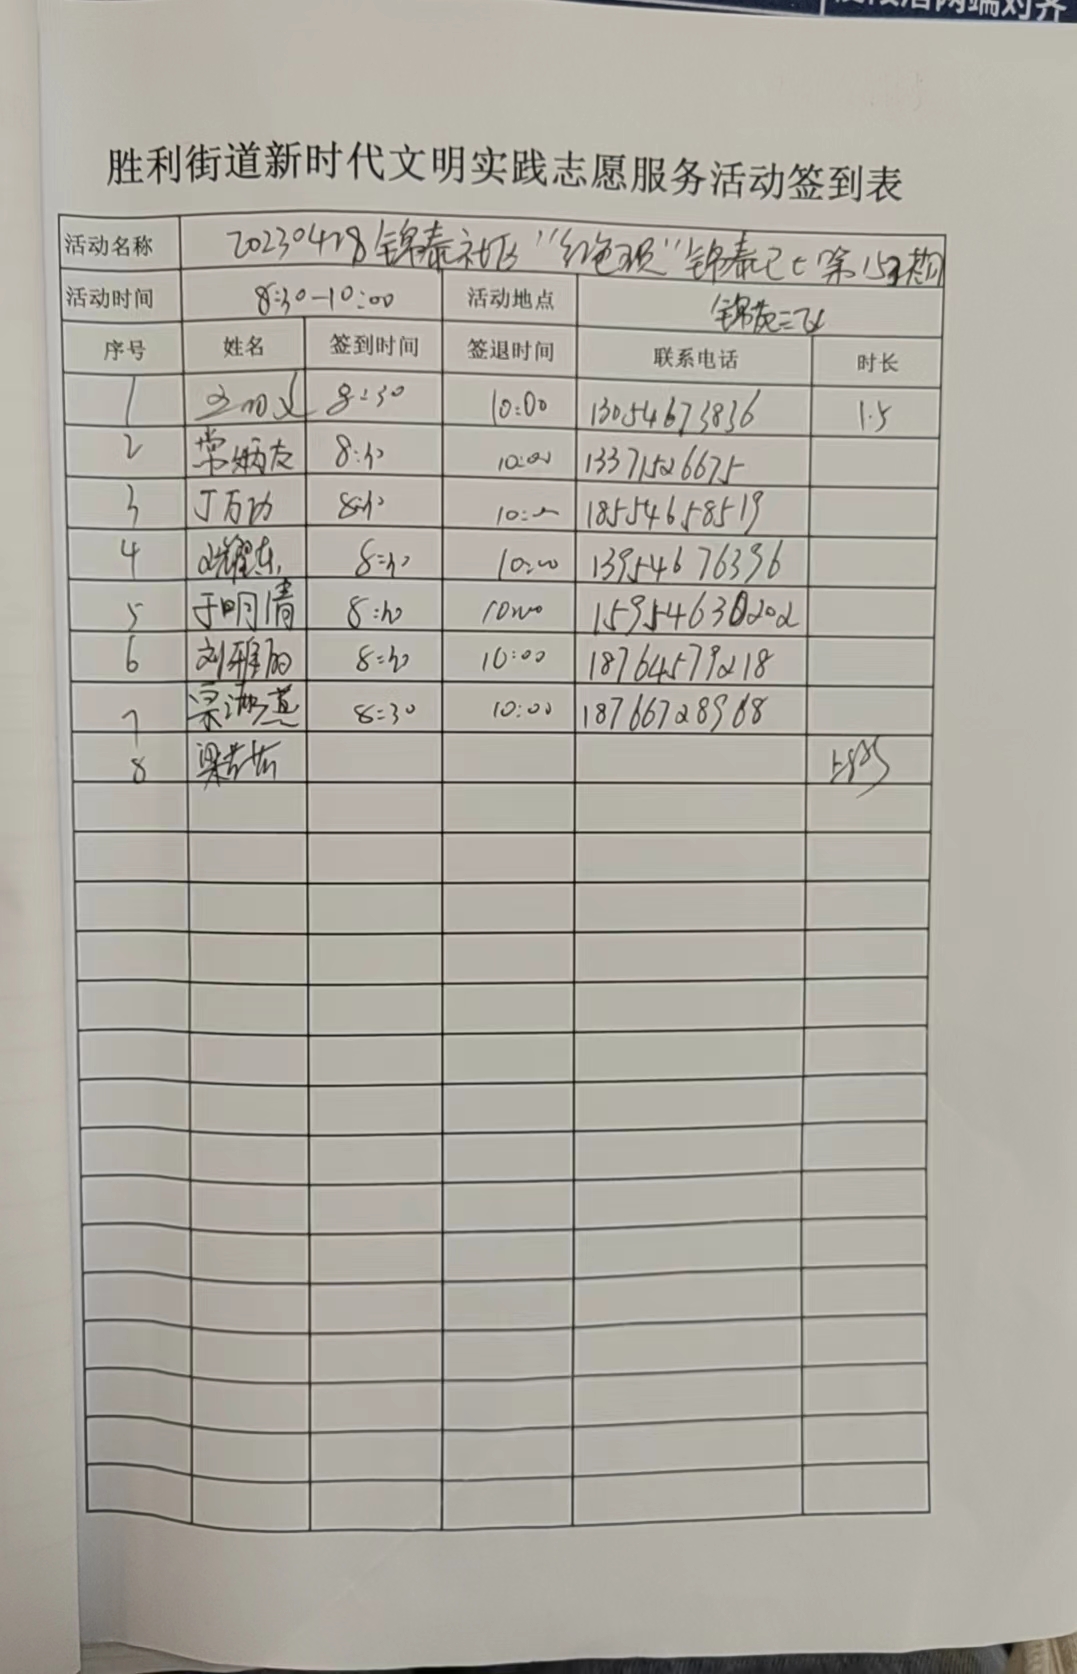 胜利街道新时代文明实践志愿服务活动签到表
活动名称 20230428锦泰社区"红色 "锦泰 第15期
活动时间 8:30-10:00 活动地点 锦苑三
序号 姓名 签到时间 签退时间 联系电话 时长
1 8:30 10:00 13054673836 1.5
2 常炳友 8:30 10:00 13371526675
3 丁万功 8:30 10: 18554658519
4 耀东 8:30 10:00 13954676396
5 于明清 8:30 10:00 15954630202
6 刘雅 8:30 10:00 18764579218
7 8:30 10:00 18766728968
8 梁